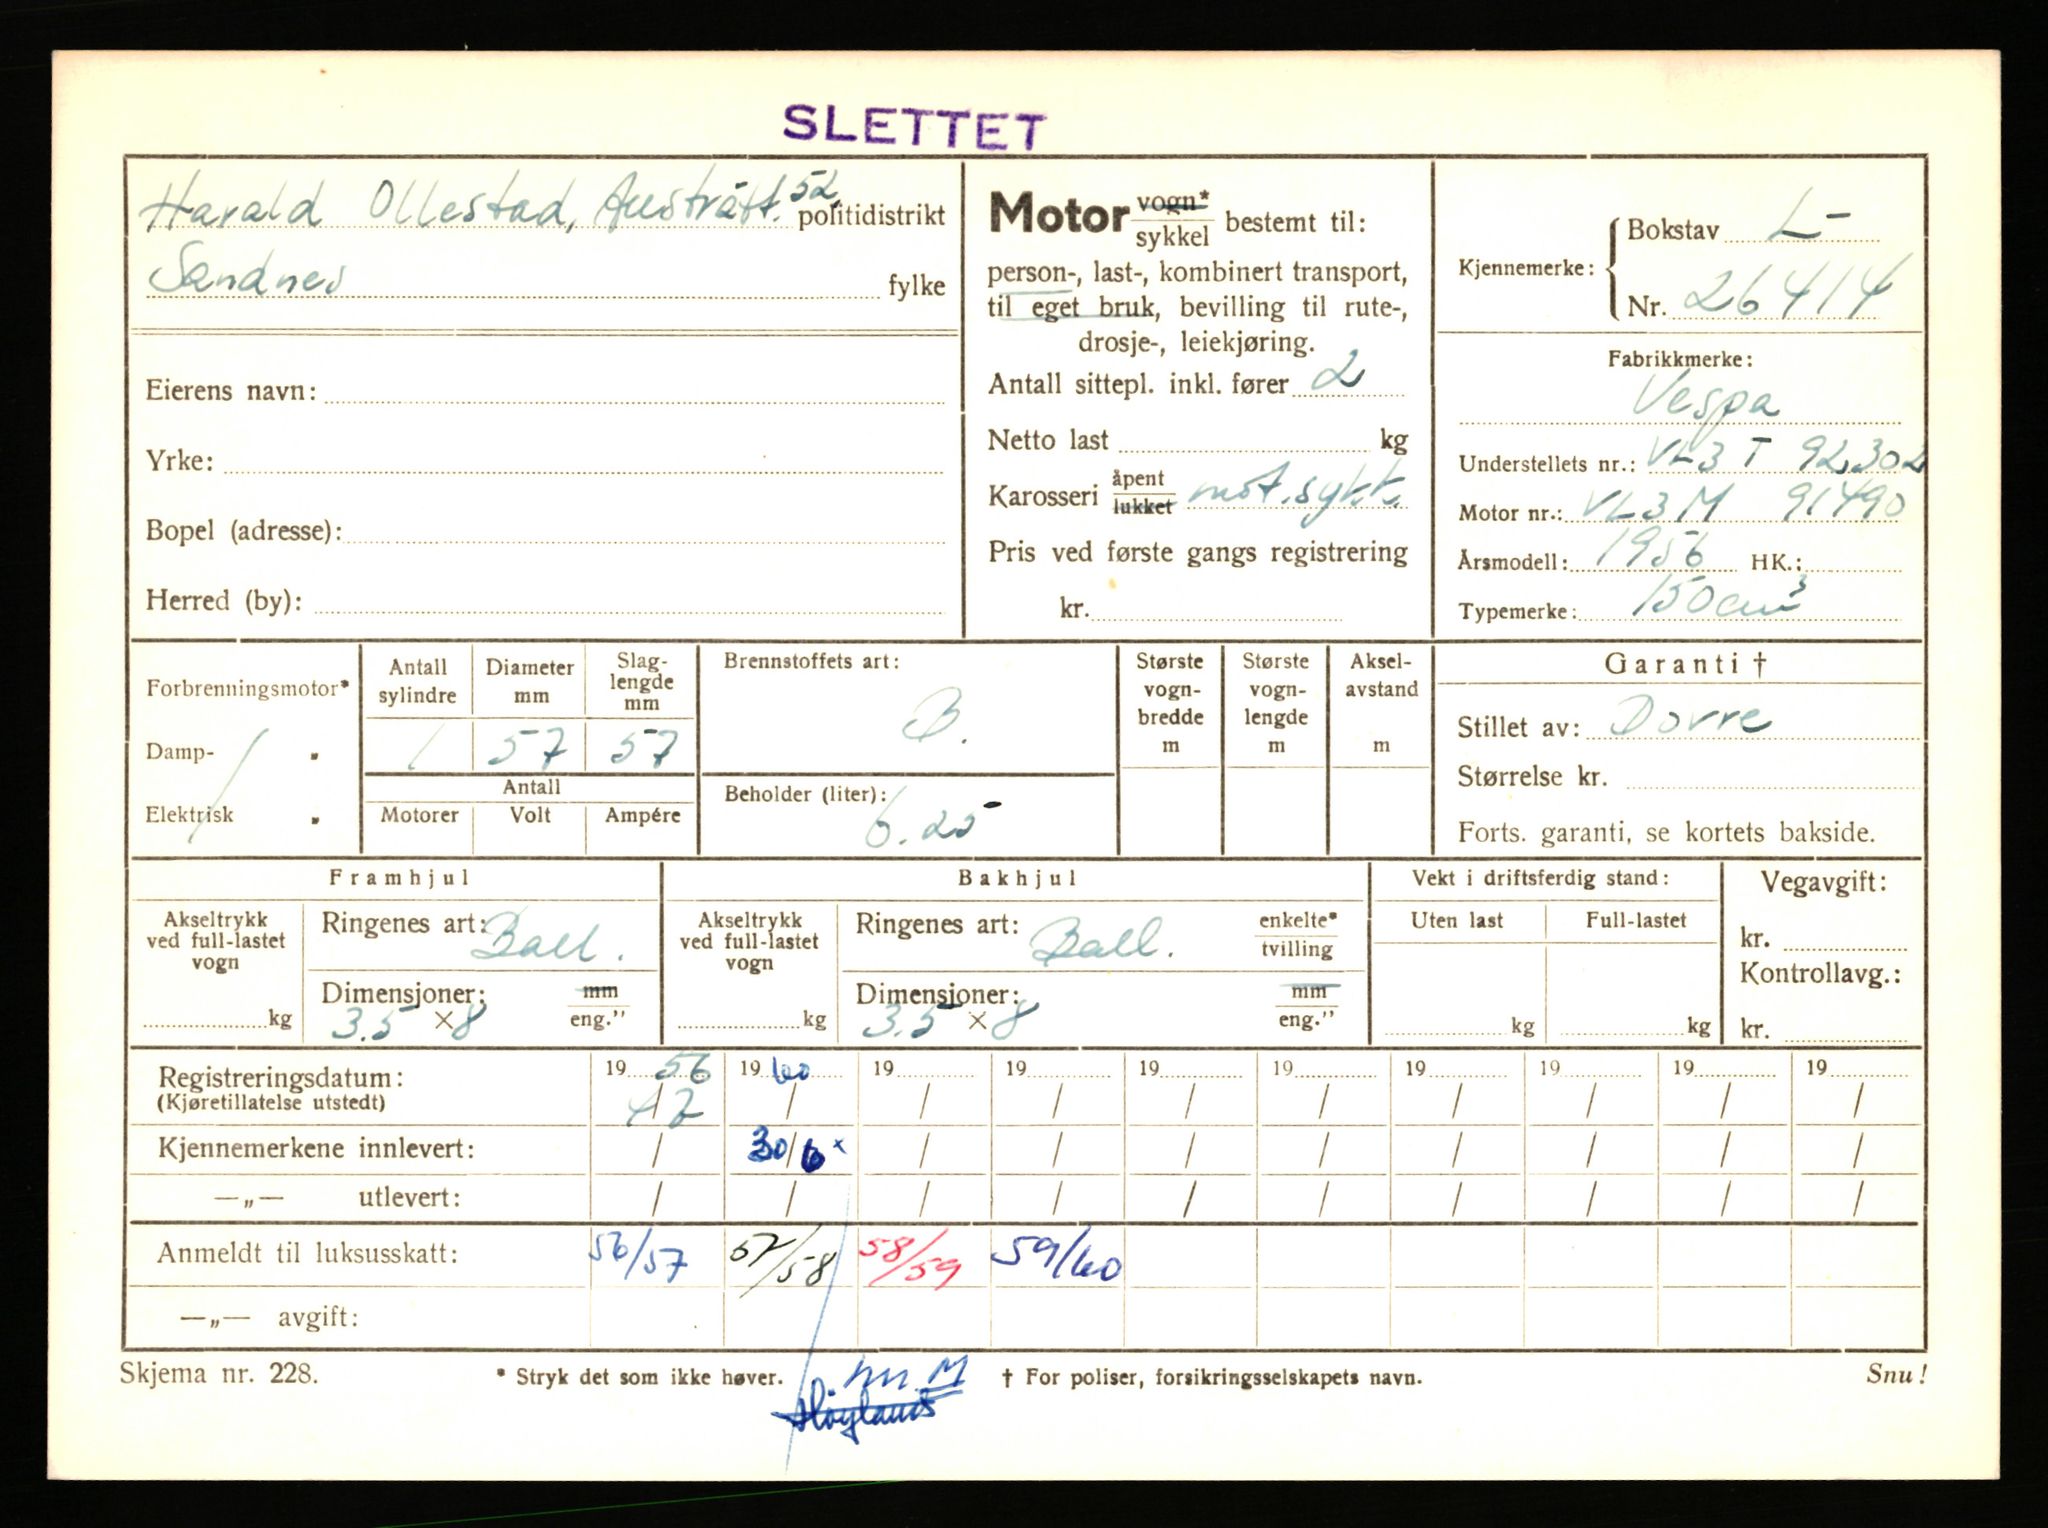 SLETTET
Harald Ollestad, Austrått. 52, politidistrikt
Sandnes fylke
Eierens navn:
Yrke:
Bopel (adresse):
Herred (by):
Motor vogn* sykkel bestemt til:
person-, last-, kombinert transport,
til eget bruk, bevilling til rute-,
drosje-, leiekjøring.
Antall sittepl. inkl. fører 2
Netto last kg
Karosseri åpent lukket mot.sykk.
Pris ved første gangs registrering
kr.
Kjennemerke: Bokstav L-
Nr. 26414
Fabrikkmerke:
Vespa
Understellets nr.: VL3 T 92302
Motor nr.: VL3M 91490
Årsmodell: 1956 HK.:
Typemerke: 150 cm³
Forbrenningsmotor*
Damp- "
Elektrisk "
Antall sylindre Diameter mm Slag-lengde mm
1 57 57
Antall
Motorer Volt Ampére
Brennstoffets art:
B.
Beholder (liter):
6.25
Største vogn-bredde m
Største vogn-lengde m
Aksel-avstand m
Garanti †
Stillet av: Dovre
Størrelse kr.
Forts. garanti, se kortets bakside.
Framhjul
Akseltrykk ved full-lastet vogn
kg
Ringenes art: Ball.
Dimensjoner: mm eng."
3.5 × 8
Bakhjul
Akseltrykk ved full-lastet vogn
kg
Ringenes art: Ball. enkelte* tvilling
Dimensjoner: mm eng."
3.5 × 8
Vekt i driftsferdig stand:
Uten last Full-lastet
kg kg
Vegavgift:
kr.
Kontrollavg.:
kr.
Registreringsdatum: 19 56 19 60 19 19 19 19 19 19 19 19
(Kjøretillatelse utstedt) 4/7 / / / / / / / / /
Kjennemerkene innlevert: / 30/6 × / / / / / / / /
—„— utlevert: / / / / / / / / / /
Anmeldt til luksusskatt: 56/57 57/58 58/59 59/60
—„— avgift:
Skjema nr. 228. * Stryk det som ikke høver. † For poliser, forsikringsselskapets navn. Snu!
M
Høyland